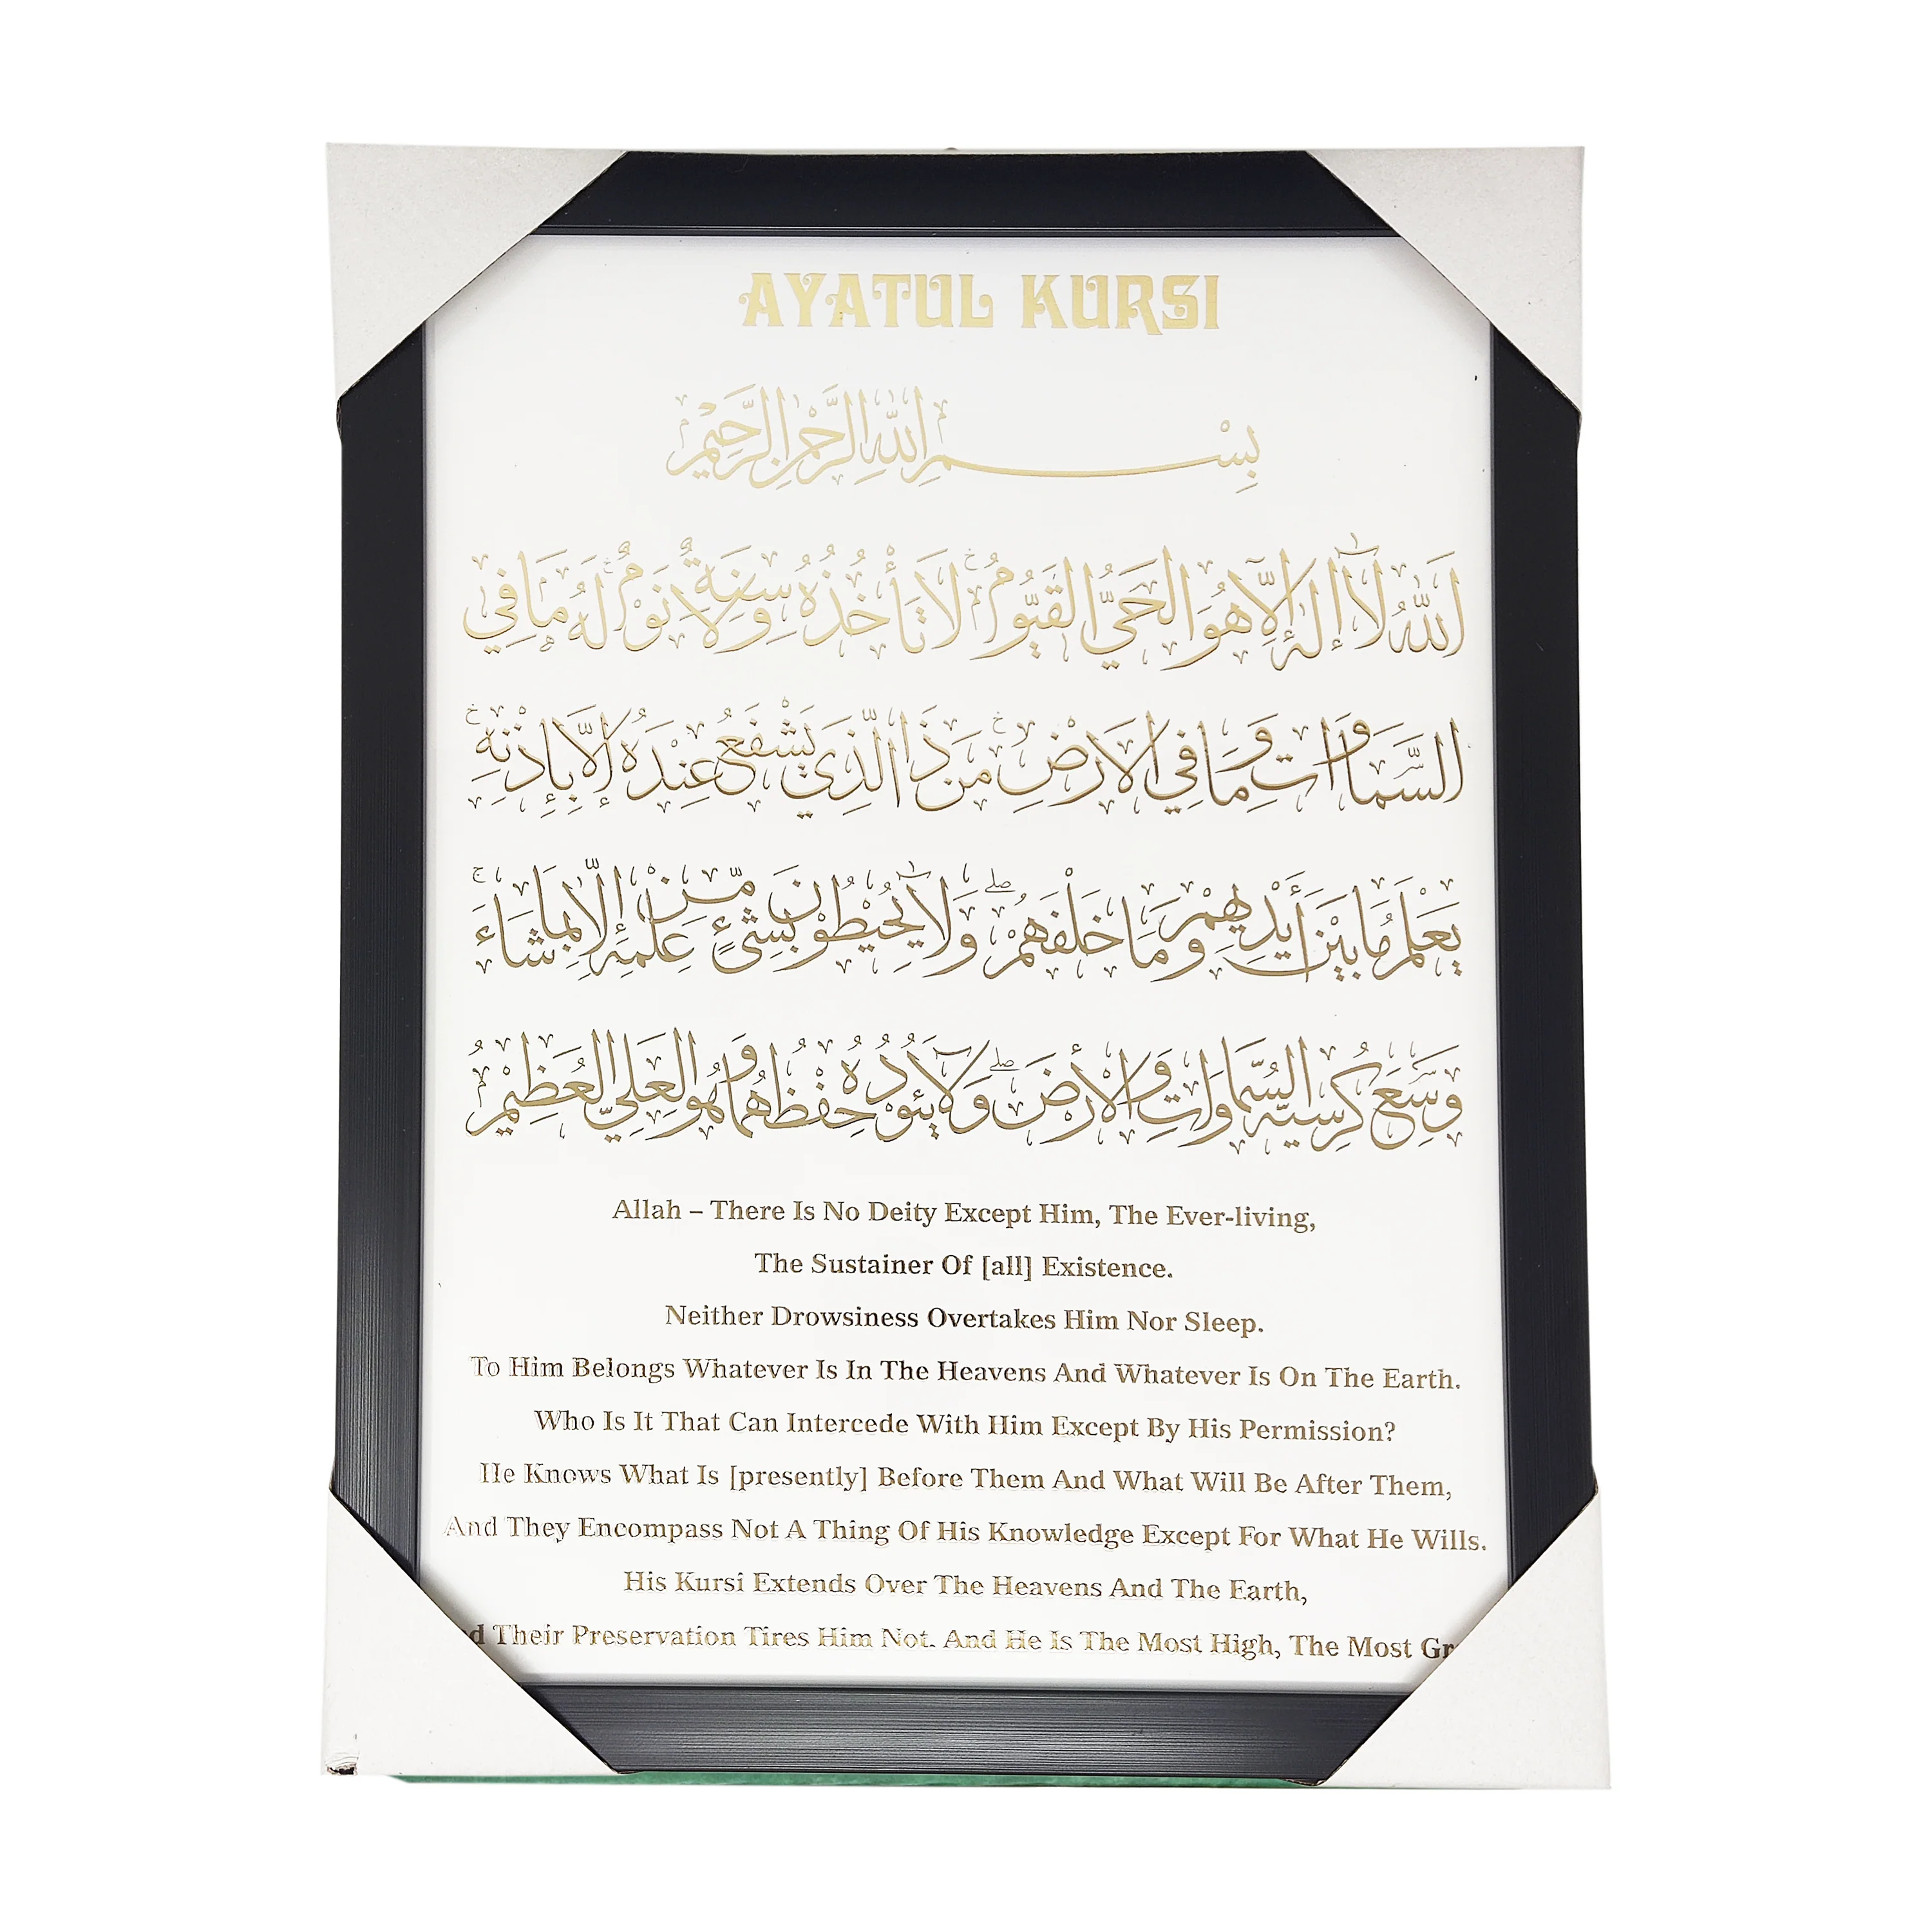 AYATUL KURSI
بِسْمِ اللّٰهِ الرَّحْمٰنِ الرَّحِيْمِ
اَللّٰهُ لَآ إِلٰهَ إِلَّا هُوَ الْحَيُّ الْقَيُّوْمُ لَا تَأْخُذُهُ سِنَةٌ وَلَا نَوْمٌ لَهُ مَا فِي
السَّمَاوَاتِ وَمَا فِي الْاَرْضِ مَنْ ذَا الَّذِيْ يَشْفَعُ عِنْدَهُ إِلَّا بِإِذْنِهِ
يَعْلَمُ مَا بَيْنَ أَيْدِيْهِمْ وَمَا خَلْفَهُمْ وَلَا يُحِيْطُوْنَ بِشَيْءٍ مِّنْ عِلْمِهِ إِلَّا بِمَا شَاءَ
وَسِعَ كُرْسِيُّهُ السَّمَاوَاتِ وَالْأَرْضَ وَلَا يَئُوْدُهُ حِفْظُهُمَا وَهُوَ الْعَلِيُّ الْعَظِيْمُ
Allah – There Is No Deity Except Him, The Ever-living,
The Sustainer Of [all] Existence.
Neither Drowsiness Overtakes Him Nor Sleep.
To Him Belongs Whatever Is In The Heavens And Whatever Is On The Earth.
Who Is It That Can Intercede With Him Except By His Permission?
He Knows What Is [presently] Before Them And What Will Be After Them,
And They Encompass Not A Thing Of His Knowledge Except For What He Wills.
His Kursi Extends Over The Heavens And The Earth,
Their Preservation Tires Him Not. And He Is The Most High, The Most